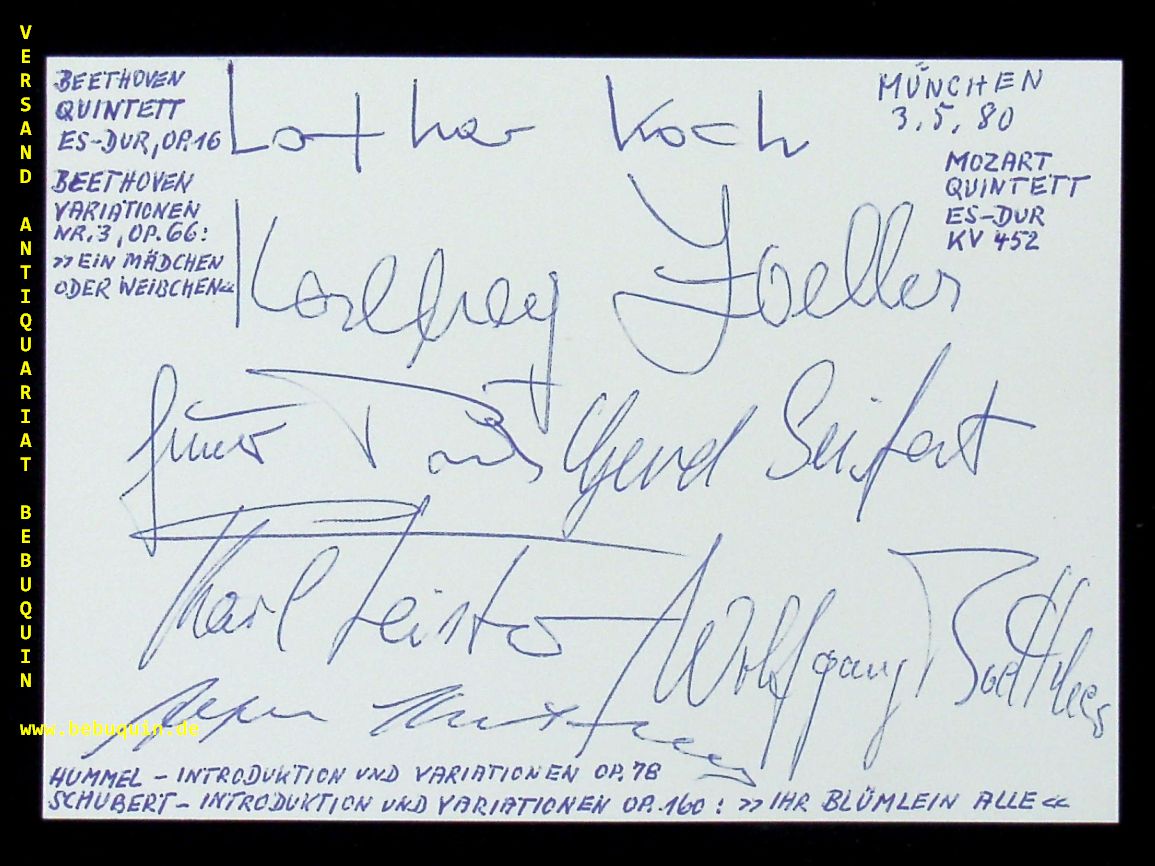 VERSAND ANTIQUARIAT BEBUQUIN
www.bebuquin.de
BEETHOVEN
QUINTETT
ES-DUR, OP. 16
BEETHOVEN
VARIATIONEN
NR. 3, OP. 66:
>> EIN MÄDCHEN
ODER WEIBCHEN <<
Lothar Koch
MÜNCHEN
3. 5. 80
MOZART
QUINTETT
ES-DUR
KV 452
Karlheinz Zoeller
Gerd Seifert
Karl Leister
Wolfgang Boettcher
HUMMEL - INTRODUKTION UND VARIATIONEN OP. 78
SCHUBERT - INTRODUKTION UND VARIATIONEN OP. 160: >> IHR BLÜMLEIN ALLE <<